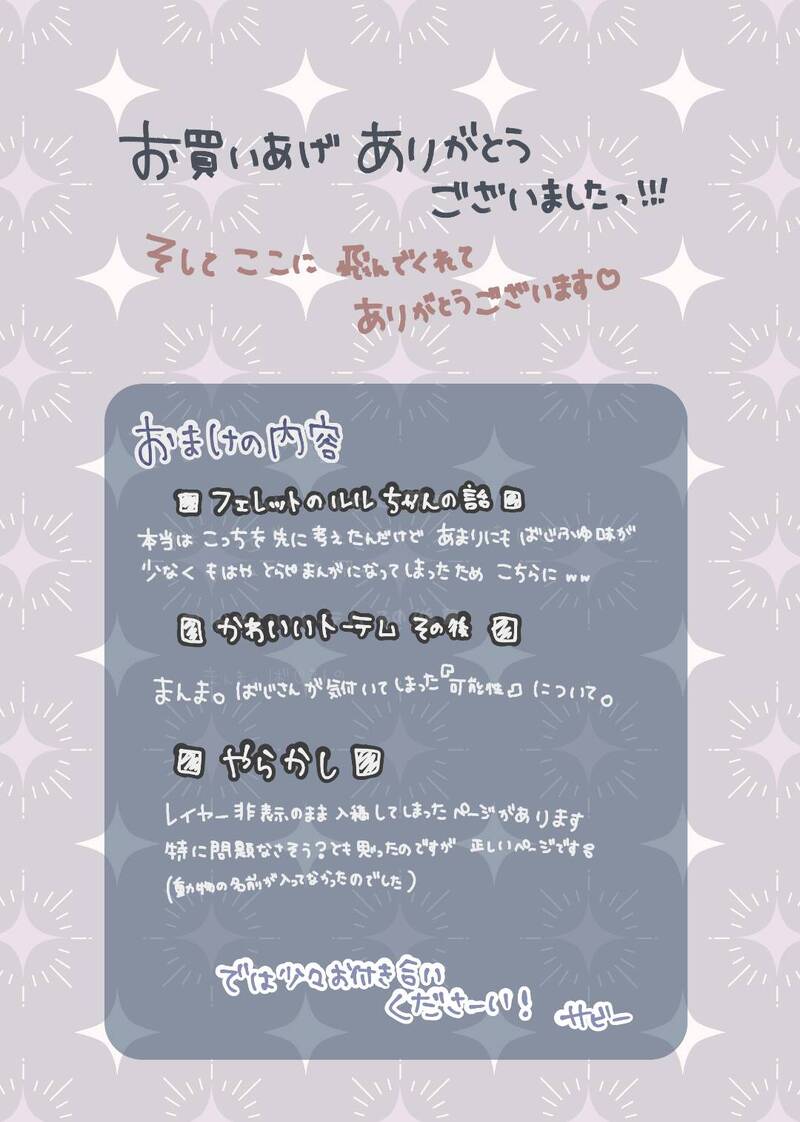 お買いあげ ありがとう
ございましたっ!!!
そして ここに 飛んでくれて
ありがとうございます♡
おまけの内容
フェレットのルルちゃんの話
本当は こっちを先に考えたんだけど あまりにも ばじふゆ味が
少なく もはや とらぴまんがになってしまったため こちらにww
かわいいトーテム その後
まんま。ばじさんが気付いてしまった『可能性』について。
やらかし
レイヤー非表示のまま入稿してしまったページがあります
特に問題なさそう?とも思ったのですが 正しいページです
(動物の名前が入ってなかったのでした)
では少々お付き合い
くださーい!
サビー